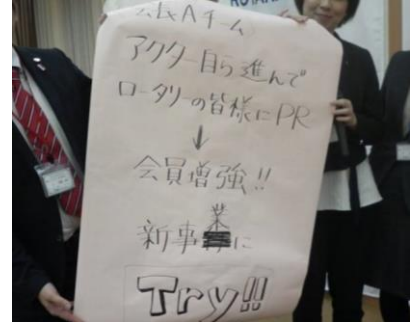 ROTA
公式Aチーム
アクター自ら進んで
ロータリーの皆様にPR
↓
会員増強!!
新事業に
Try!!